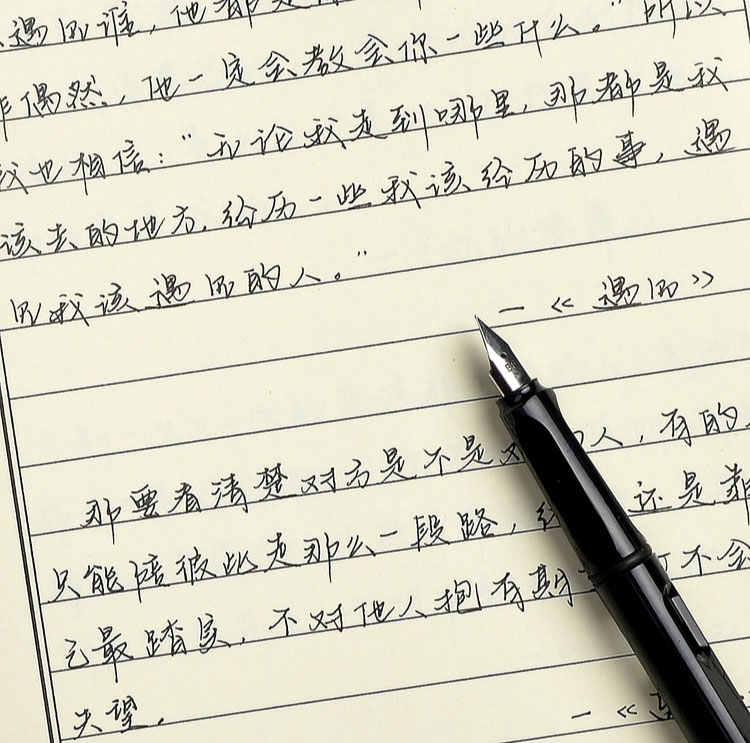 遇见谁，他都是
偶然，他一定会教会你一些什么。"所以
我也相信："无论我走到哪里，那都是我
该去的地方，经历一些我该经历的事，遇
见我该遇见的人。"
—《遇见》
那要看清楚对方是不是对的人，有的
只能陪彼此走那么一段路，还是靠
己最踏实，不对他人抱有期不会
失望。
—《